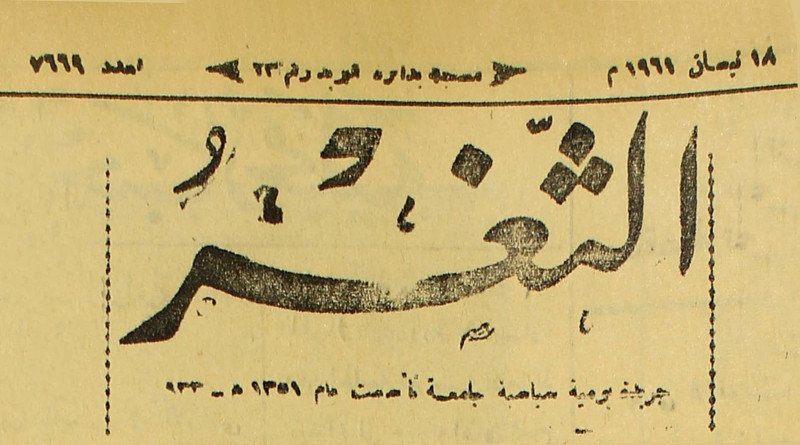 ١٨ نيسان ١٩٦١ م مسجلة بدائرة البريد رقم ٢٣ العدد ٧٦٦٩
الثَّغْرُ
جريدة يومية سياسية جامعة تأسست عام ١٣٥١ ه ـ ٩٣٣